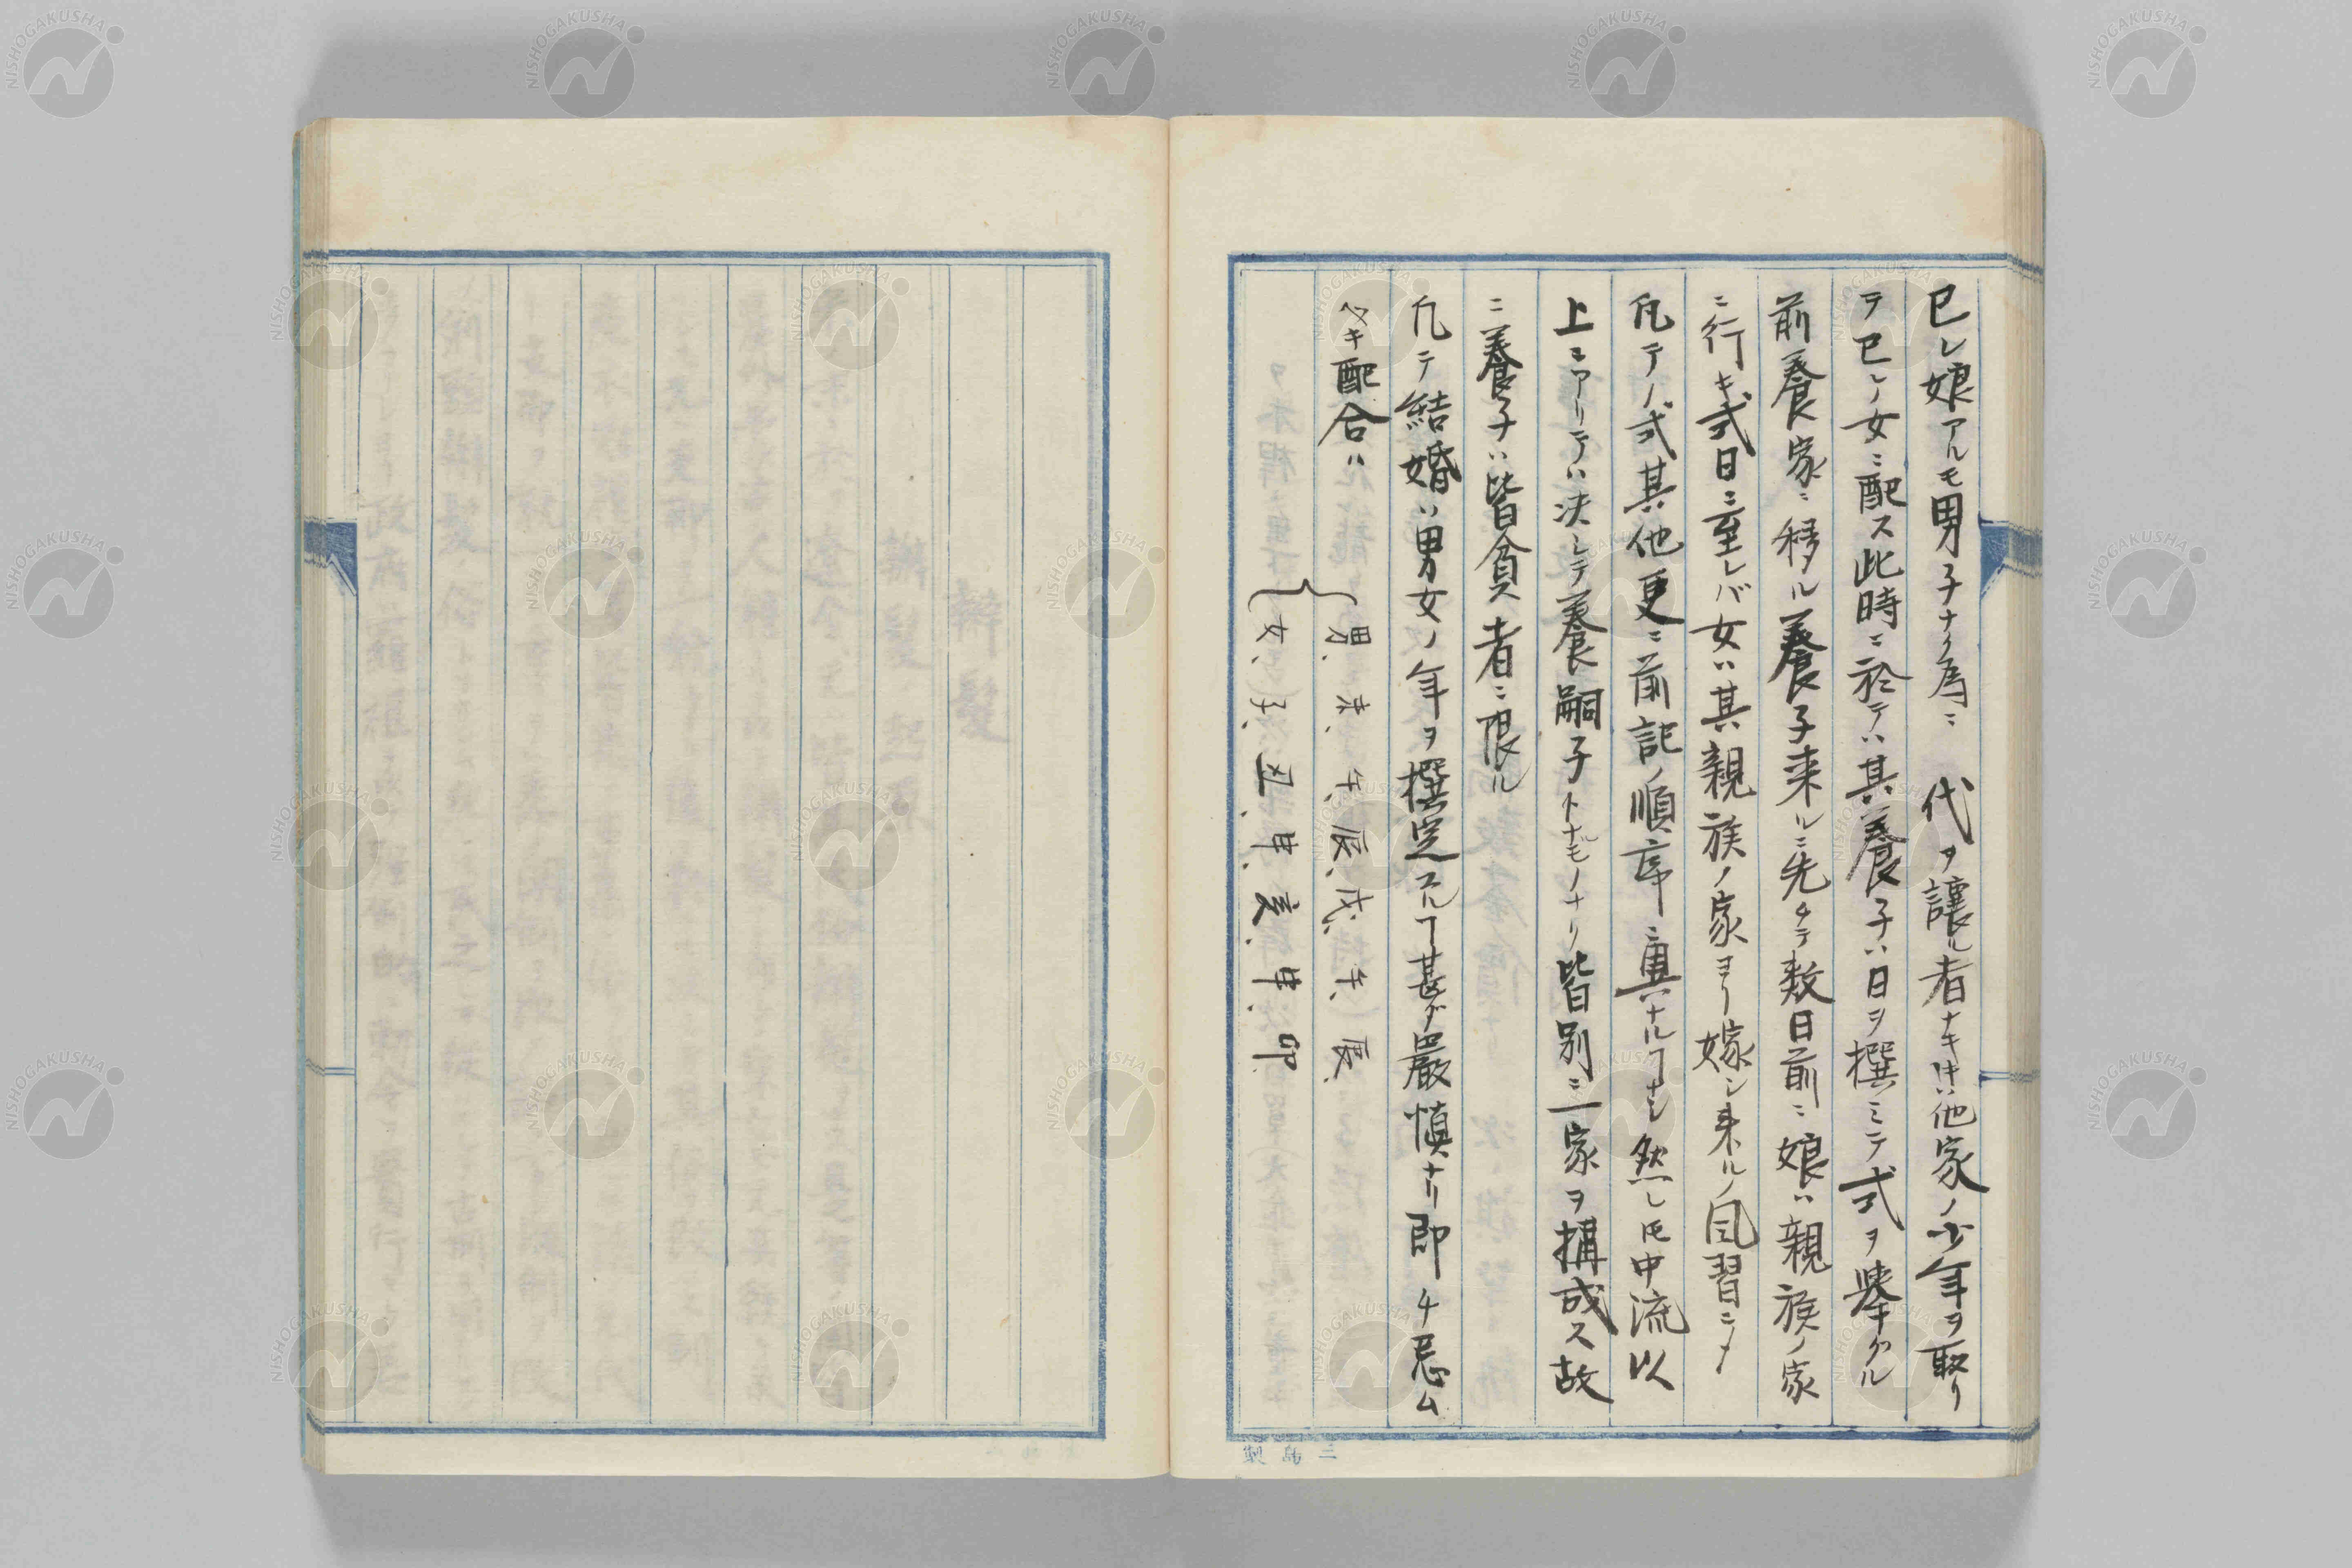 已レ娘アルモ男子ナク為ニ　代ヲ譲ル者ナキ时ハ他家ノ少年ヲ取リ
テ已レノ女ニ配ス此時ニ於テハ其養子ハ日ヲ撰ミテ式ヲ挙クル
前養家ニ移ル養子来ルニ先チテ数日前ニ娘ハ親族ノ家
ニ行キ式日ニ至レバ女ハ其親族ノ家ヨリ嫁シ来ルノ風習ニメ
凡テノ式其他更ニ前記ノ順序ニ異ナルヿナシ然レ𪜈中流以
上ニアリテハ决シテ養嗣子トナルモノナリ皆別ニ一家ヲ構成ス故
ニ養子ハ皆貧者ニ限ル
凡テ結婚ハ男女ノ年ヲ撰定スルヿ甚ダ厳慎ナリ即チ忌ム
ベキ配合ハ
男、未、午、辰、戌、午、辰、
女、子、丑、申、亥、申、卯
三島製
NISHOGAKUSHA